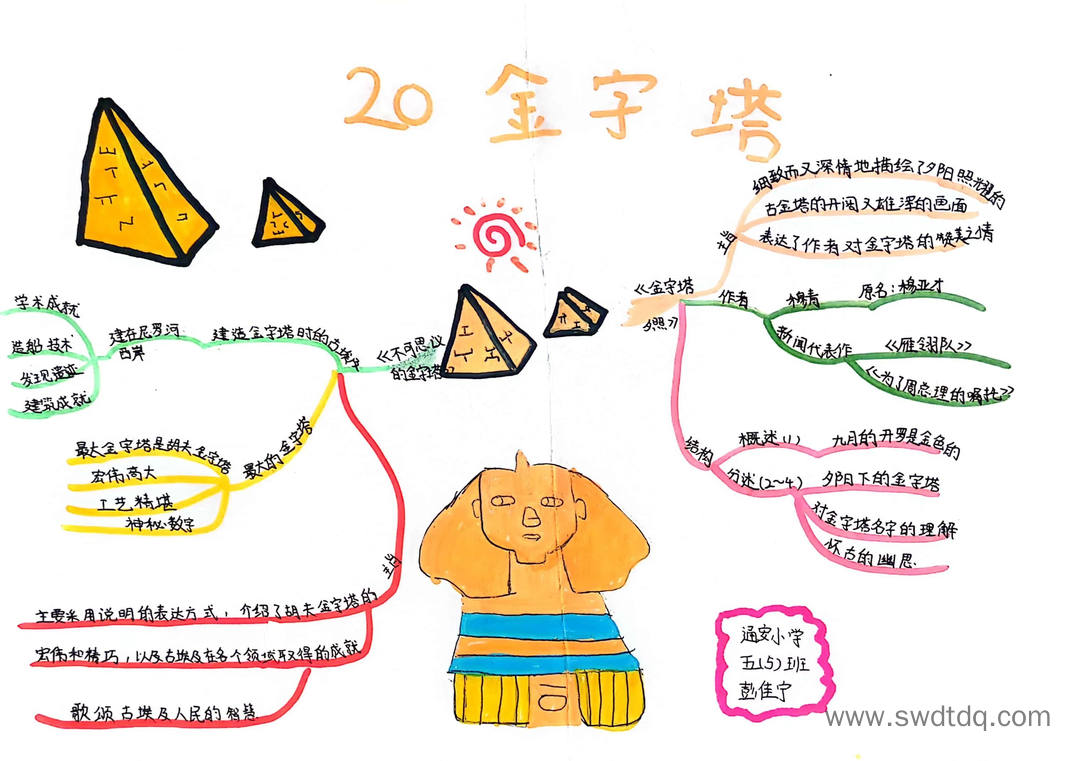 20 金字塔
《金字塔
夕照》
主旨
细致而又深情地描绘了夕阳照耀的
古金塔的开阔又雄浑的画面
表达了作者对金字塔的赞美之情
作者
穆青
原名:穆亚才
新闻代表作
《雁翎队》
《为了周总理的嘱托》
结构
概述(1)
九月的开罗是金色的
分述(2~4)
夕阳下的金字塔
对金字塔名字的理解
怀古的幽思
《不可思议
的金字塔》
建造金字塔时的古埃及
建在尼罗河
西岸
学术成就
造船技术
发现遗迹
建筑成就
最大的金字塔
最大金字塔是胡夫金字塔
宏伟高大
工艺精堪
神秘数字
主旨
主要采用说明的表达方式,介绍了胡夫金字塔的
宏伟和精巧,以及古埃及在各个领域取得的成就
歌颂古埃及人民的智慧
通安小学
五(5)班
彭佳宁
www.swdtdq.com